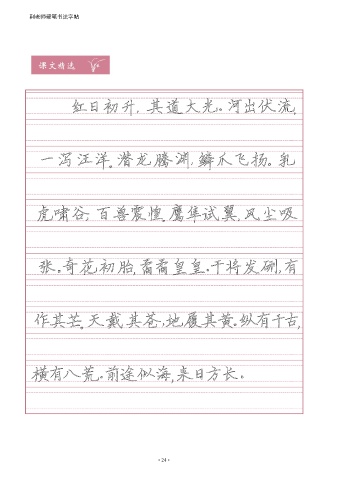 田老师硬笔书法字帖
课文精选
红日初升,其道大光。河出伏流,
一泻汪洋。潜龙腾渊,鳞爪飞扬。乳
虎啸谷,百兽震惶。鹰隼试翼,风尘吸
张。奇花初胎,矞矞皇皇。干将发硎,有
作其芒。天戴其苍,地履其黄。纵有千古,
横有八荒。前途似海,来日方长。
·24·